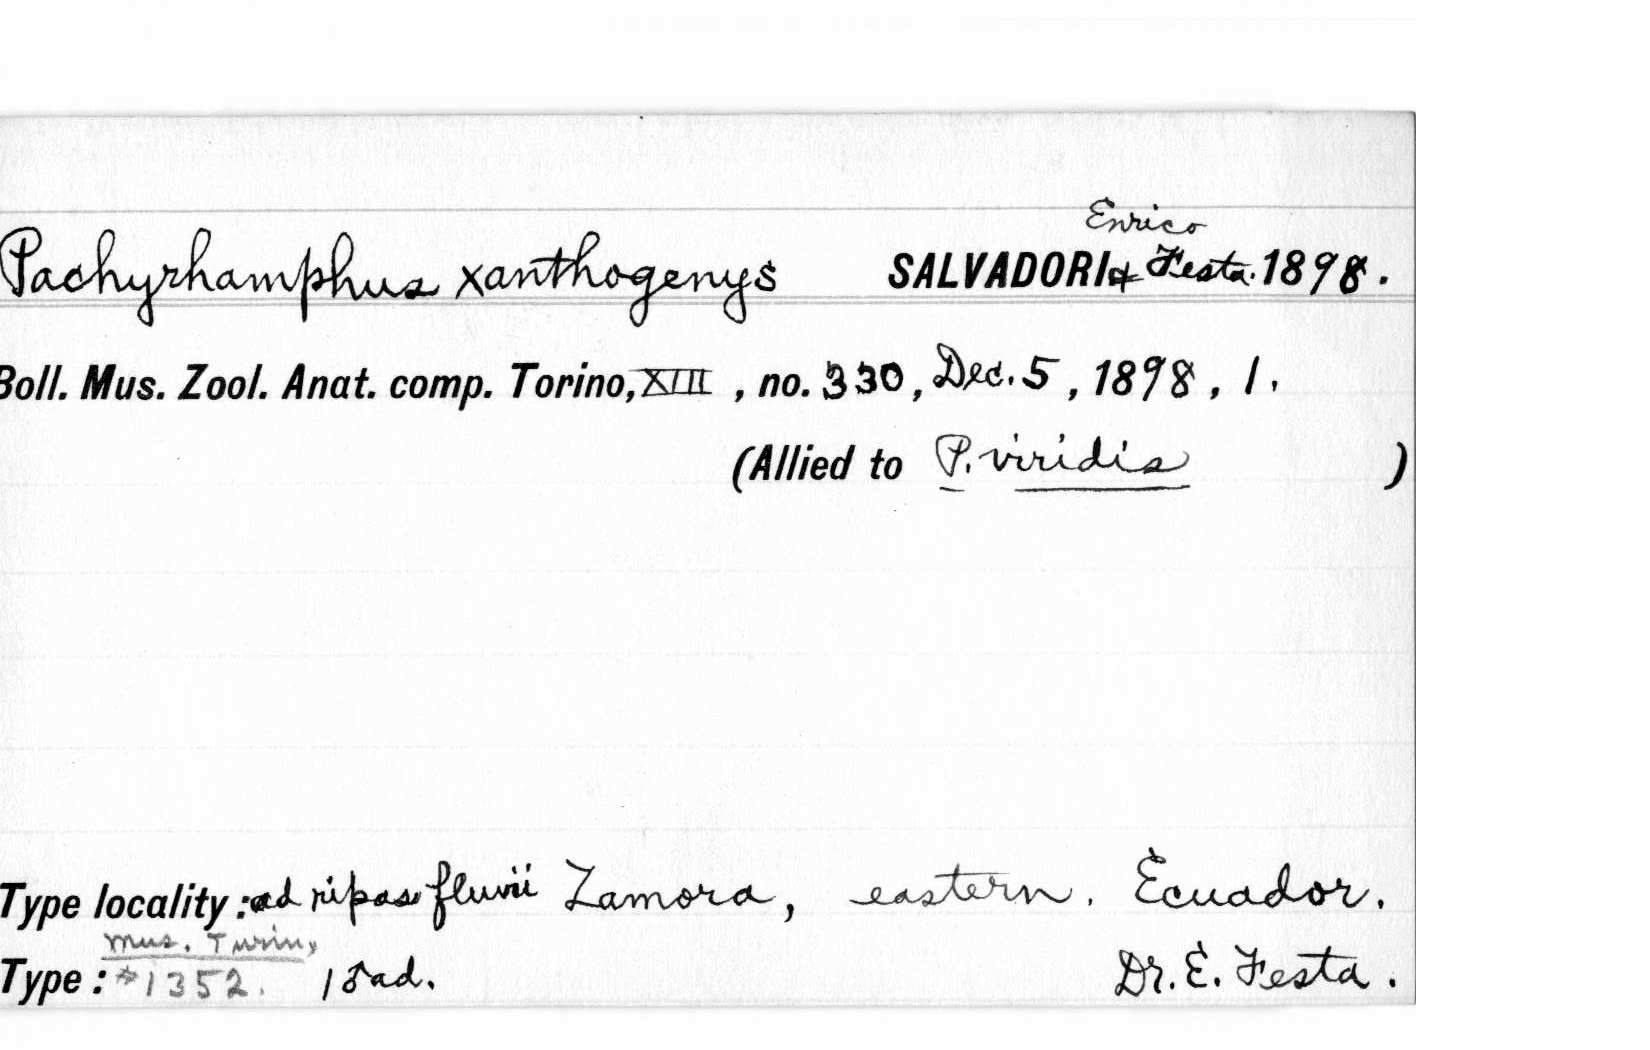 Enrico
Pachyrhamphus xanthogenys SALVADORI & Festa. 1898.
Boll. Mus. Zool. Anat. comp. Torino, XIII, no. 330, Dec. 5, 1898, 1.
(Allied to P. viridis )
Type locality: ad ripas fluvii Zamora, eastern. Ecuador.
Mus. Turin,
Type: #1352. 1 ♂ ad. Dr. E. Festa.